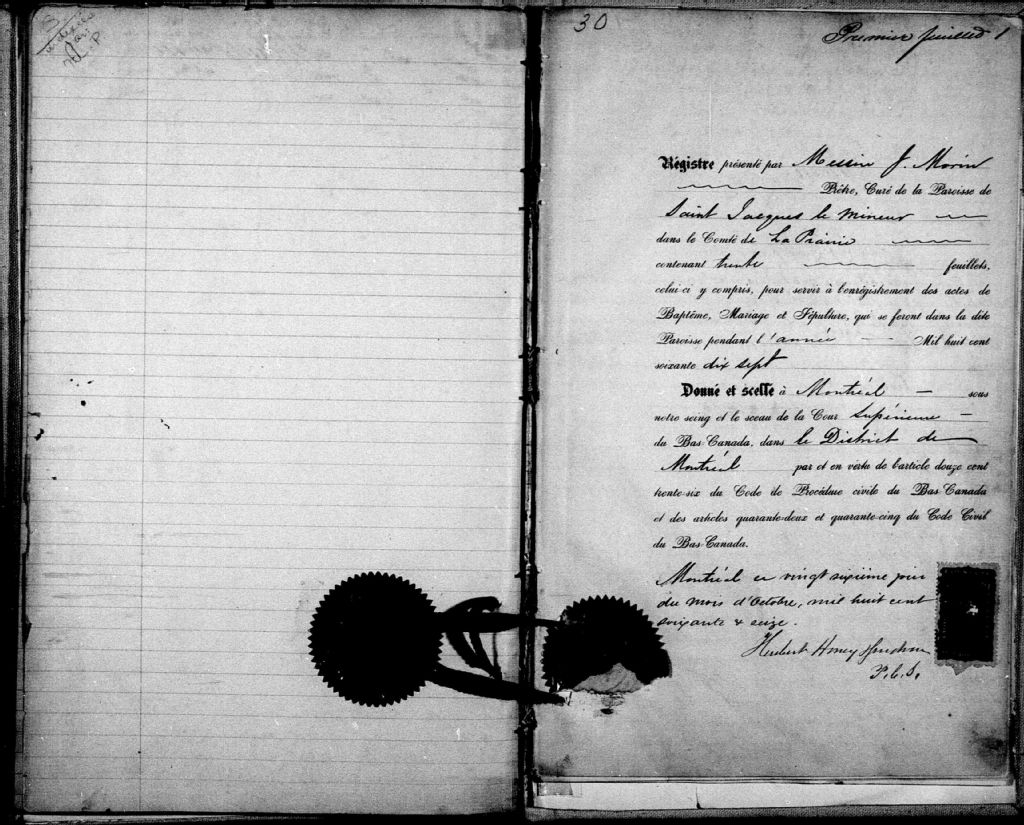 30
Premier feuillet 1
Régistre présenté par Messire J. Morin
Prêtre, Curé de la Paroisse de
Saint Jacques le mineur
dans le Comté de La Prairie
contenant trente feuillets,
celui-ci y compris, pour servir à l'enrégistrement des actes de
Baptême, Mariage et Sépulture, qui se feront dans la dite
Paroisse pendant l'année Mil huit cent
soixante dix sept
Donné et scellé à Montréal sous
notre seing et le sceau de la Cour Supérieure
du Bas-Canada, dans le District de
Montréal par et en vertu de l'article douze cent
trente-six du Code de Procédure civile du Bas-Canada
et des articles quarante-deux et quarante-cinq du Code Civil
du Bas-Canada.
Montréal ce vingt sixième jour
du mois d'Octobre, mil huit cent
soixante & seize.
Herbert Honey
P.C.S.